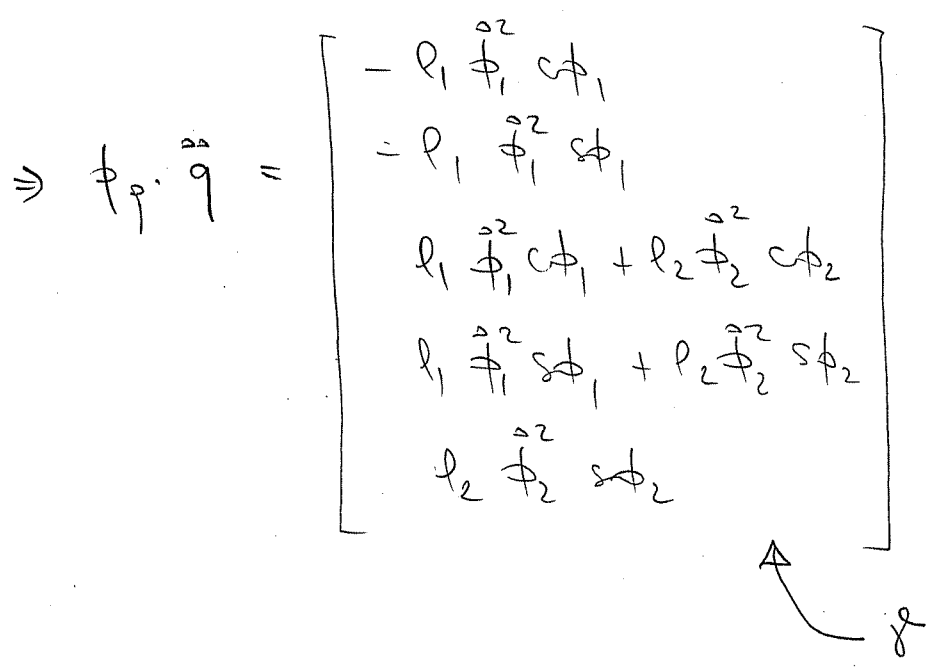 - l₁ φ̇₁² cφ₁
- l₁ φ̇₁² sφ₁
⇒ φ_q · q̈ =
l₁ φ̇₁² cφ₁ + l₂ φ̇₂² cφ₂
l₁ φ̇₁² sφ₁ + l₂ φ̇₂² sφ₂
l₂ φ̇₂² sφ₂
γ